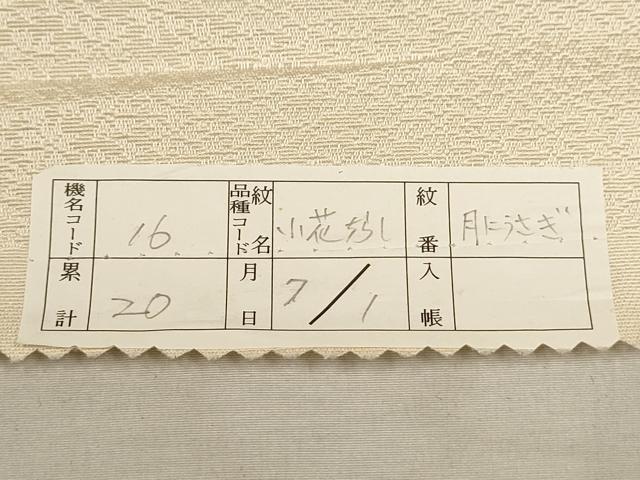 機名コード 16 品種コード 紋名 小花ちらし 紋番 月にうさぎ
累計 20 月日 7/1 入帳